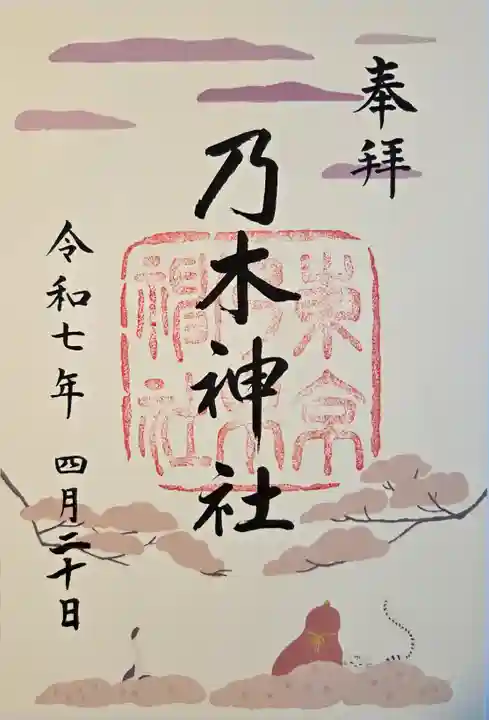 奉拝
乃木神社
東京乃木神社
令和七年 四月二十日